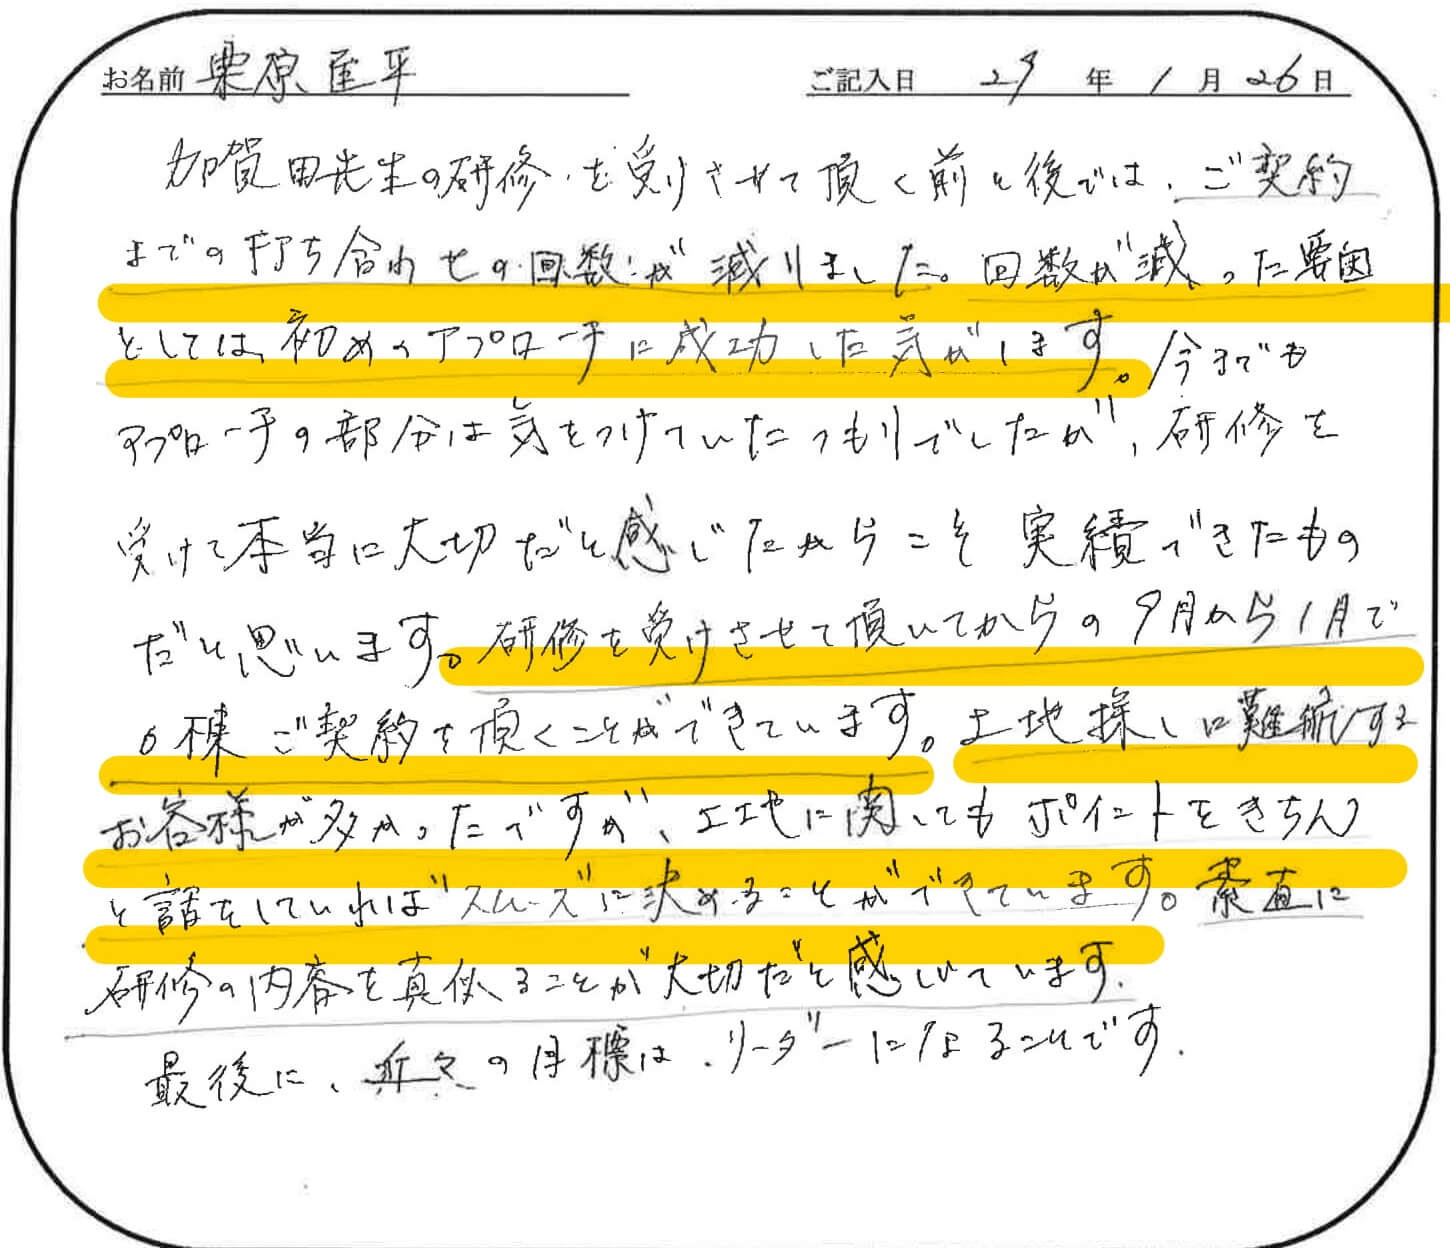 お名前 栗原 匡平 ご記入日 29年1月26日
加賀田先生の研修を受けさせて頂く前と後では、ご契約
までの打ち合わせの回数が減りました。回数が減った要因
としては、初めのアプローチに成功した気がします。今までも
アプローチの部分は気をつけていたつもりでしたが、研修を
受けて本当に大切だと感じたからこそ実績できたもの
だと思います。研修を受けさせて頂いてからの9月から1月で
6棟ご契約を頂くことができています。土地探しに難航する
お客様が多かったですが、土地に関してもポイントをきちん
と話をしていればスムーズに決めることができています。素直に
研修の内容を真似ることが大切だと感じています。
最後に、近々の目標は、リーダーになることです。